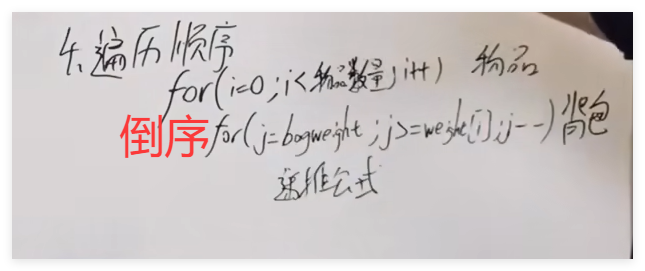 4、遍历顺序
for(i=0;i<物品数量;i++) 物品
倒序for(j=bagweight;j>=weight[i];j--) 背包
递推公式